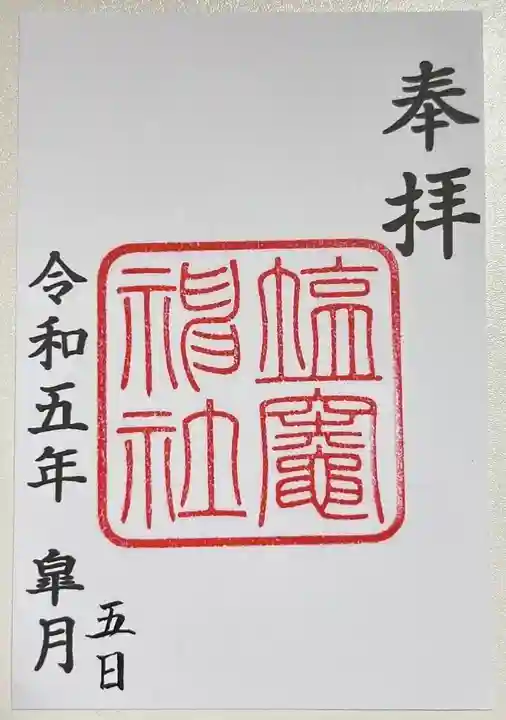 奉拝
塩竈
神社
令和五年 皐月
五日